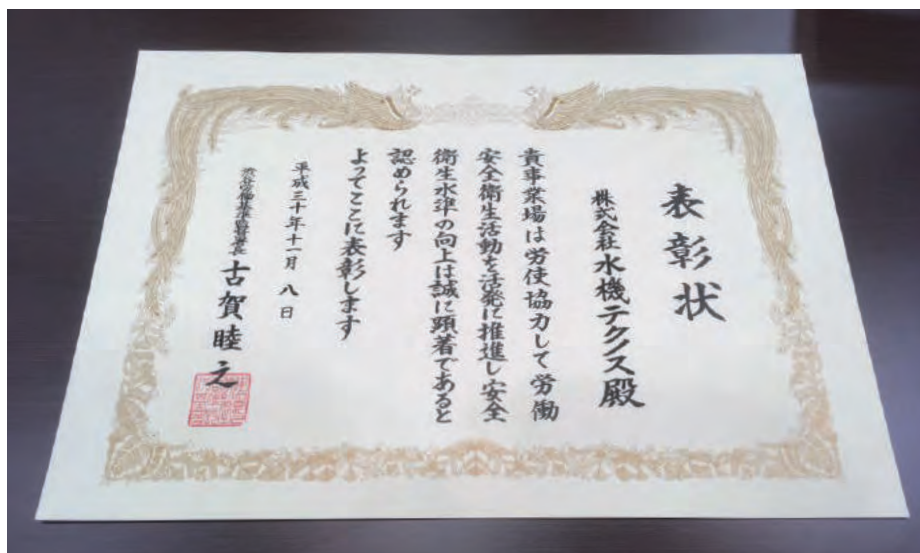 表彰状
株式会社水機テクノス殿
貴事業場は労使協力して労働
安全衛生活動を活発に推進し安全
衛生水準の向上は誠に顕著であると
認められます
よってここに表彰します
平成三十年十一月 八 日
渋谷労働基準監督署長 古賀睦之